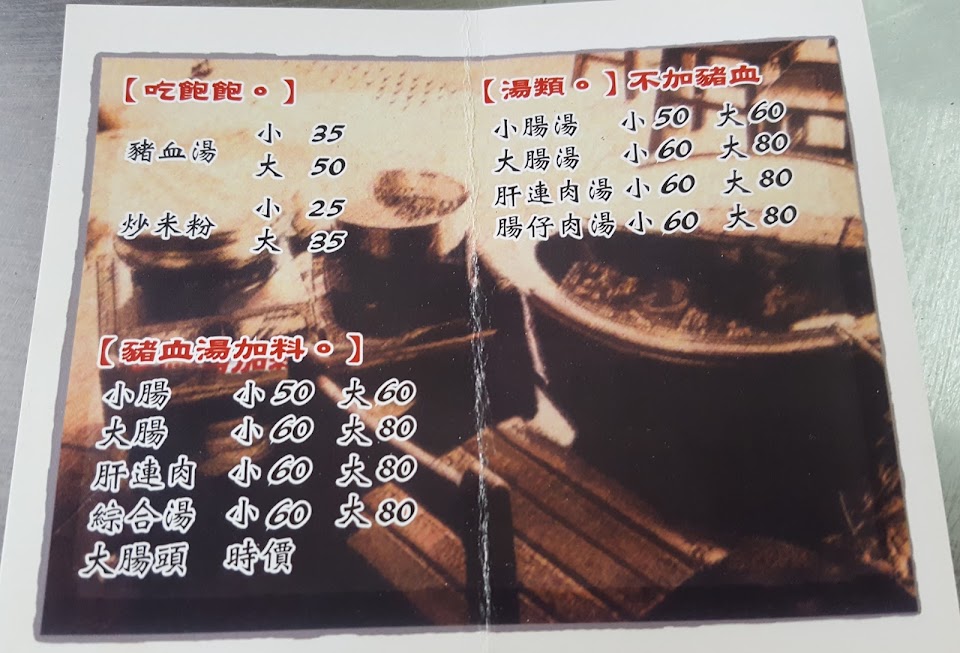 【吃飽飽。】
豬血湯 小 35
大 50
炒米粉 小 25
大 35
【豬血湯加料。】
小腸 小50 大60
大腸 小60 大80
肝連肉 小60 大80
綜合湯 小60 大80
大腸頭 時價
【湯類。】不加豬血
小腸湯 小50 大60
大腸湯 小60 大80
肝連肉湯 小60 大80
腸仔肉湯 小60 大80